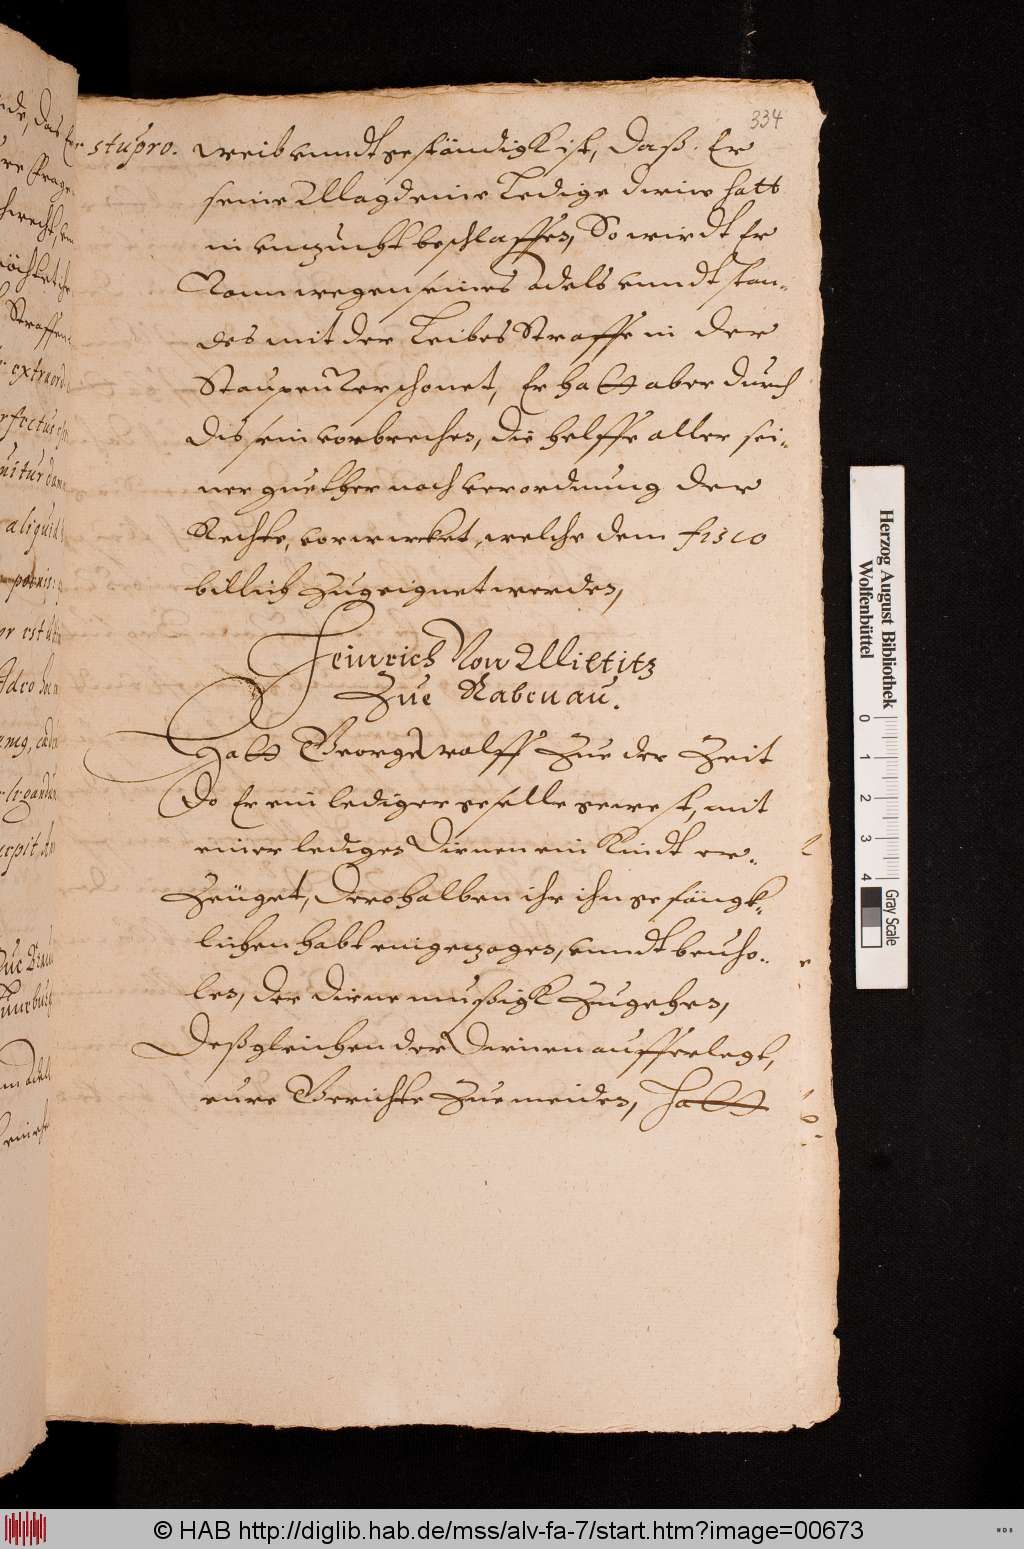 334
stupro. weib vnndt gestandigk ist, daß Er
seine Magd eine Ledige dirne hatt
in vnzucht beschlaffen, So wirdt Er
Nonn wegen seines Adels vnndt stan-
des mit der Leibes Straffe in der
Staupen Verschonet, Er hatt aber durch
dis sein vorbrechen, die helffte aller sei-
ner guether nach verordnung der
Rechte, vorwircket, welche dem fisco
billich Zugeignet werden,
Heinrich Von Miltitz
Zue Rabenau.
Hatt George Wolff Zue der Zeit
do Er ein lediger geselle gewest, mit
einer ledigen Dirnen ein Kindt er-
Zeüget, derohalben ihr ihn gefängk-
lichen habt eingezogen, vnndt beuho-
len, der dirne mußigk Zugehen,
deßgleichen der Dirnen aufferlegt,
eure Gerichte Zue meiden, hatt
Herzog August Bibliothek
Wolfenbüttel
0 1 2 3 4
Gray Scale
© HAB http://diglib.hab.de/mss/alv-fa-7/start.htm?image=00673